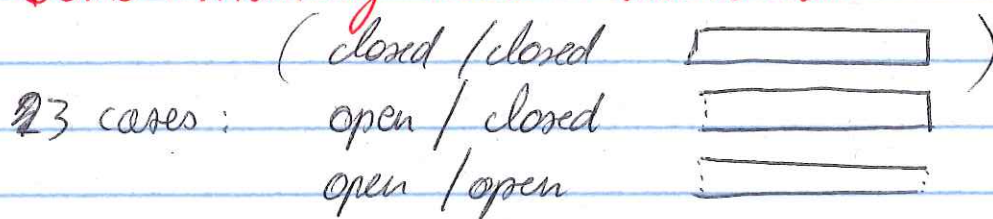 ( closed / closed )
3 cases : open / closed
open / open